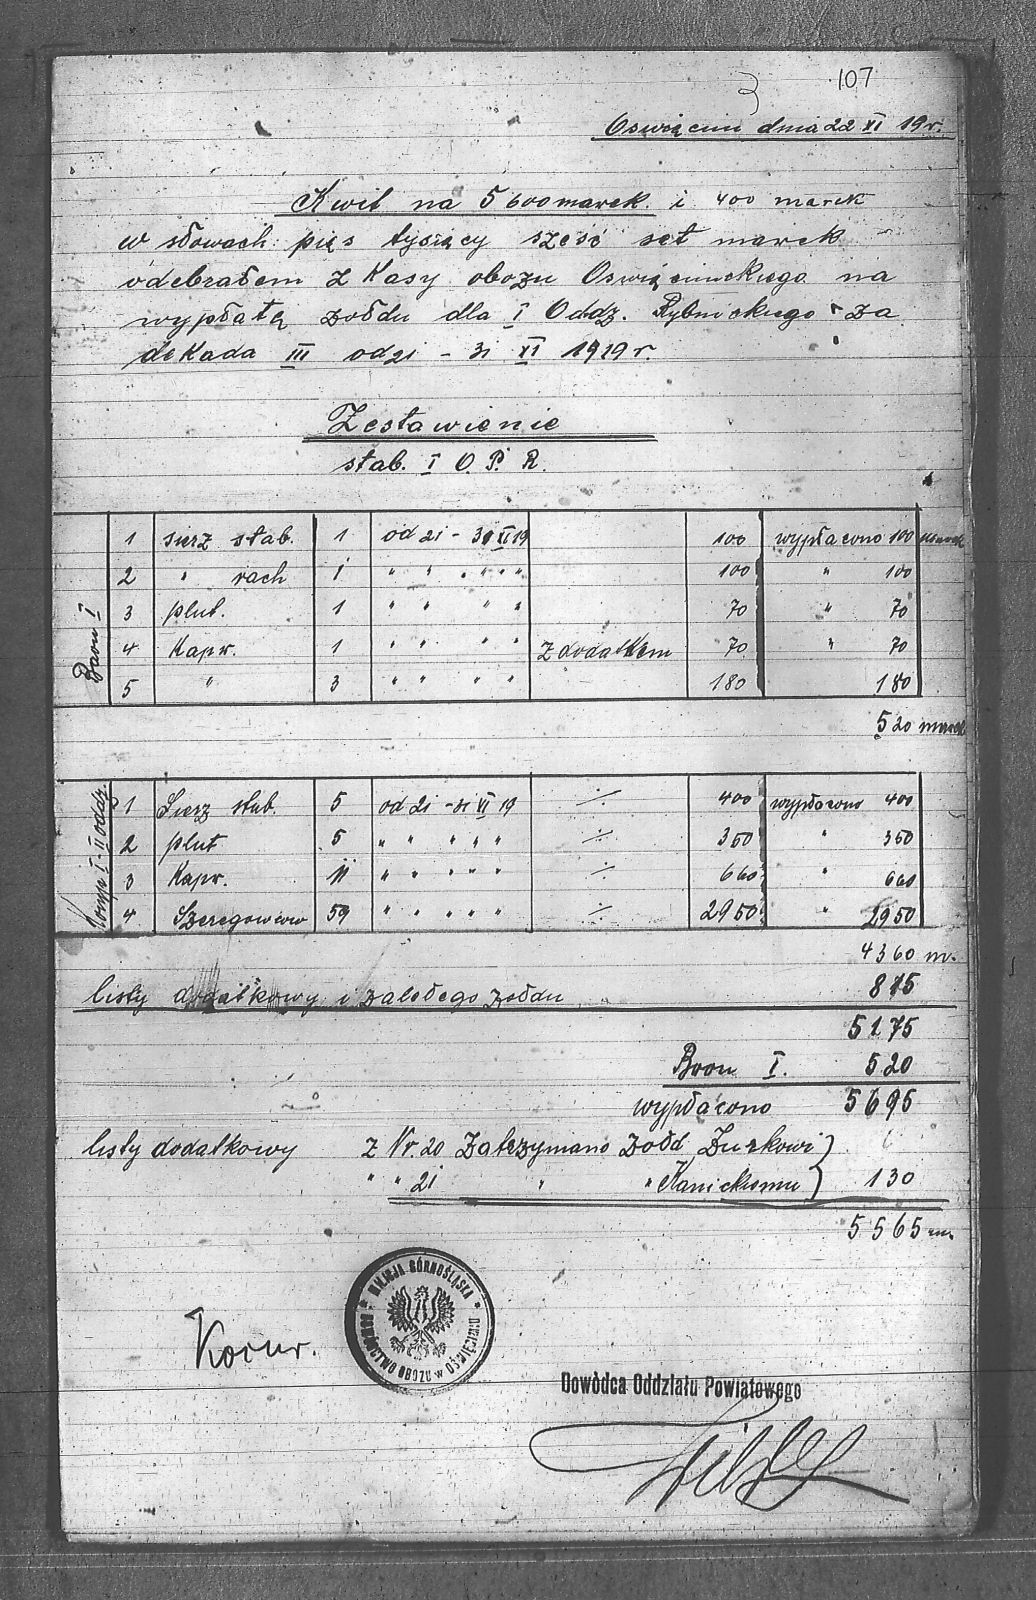 107
3
Oswięcim dnia 22 XI 19 r.
Kwit na 5600 marek. i 400 marek
w słowach: pięs tysięcy sześć set marek
odebrałem z Kasy obozu Oswięcimckiego na
wypłatę żołdu dla I Oddz. Rybnickiego za
dekada III od 21 - 31 XI 1919 r.
Zestawienie
stab. I O. P. R.
Baon I
1 sierz stab. 1 od 21 - 31 XI 19 100 wypłacono 100 marek
2 " rach 1 " " " " " 100 " 100
3 plut. 1 " " " " 70 " 70
4 Kapr. 1 " " " " z dodatkem 70 " 70
5 " 3 " " " " 180 180
520 marek
Komp I - II oddz
1 Sierz stab. 5 od 21 - 31 XI 19 ./. 400 wypłacono 400
2 plut 5 " " " " " ./. 350 " 350
3 Kapr. 11 " " " " " ./. 660 " 660
4 Szeregowcow 59 " " " " " ./. 2950 " 2950
4360 m.
listy dodatkowy i zaległego żołdu 815
5175
Baon I. 520
wypłacono 5695
listy dodatkowy z Nr. 20 Zatrzymano żołd Żurkowi
" " 21 " " Kanickiemu } 130
5565 m.
MILICJA GÓRNOŚLĄSKA
DOWÓDCTWO OBOZU w OŚWIĘCIMIU
Dowódca Oddziału Powiatowego